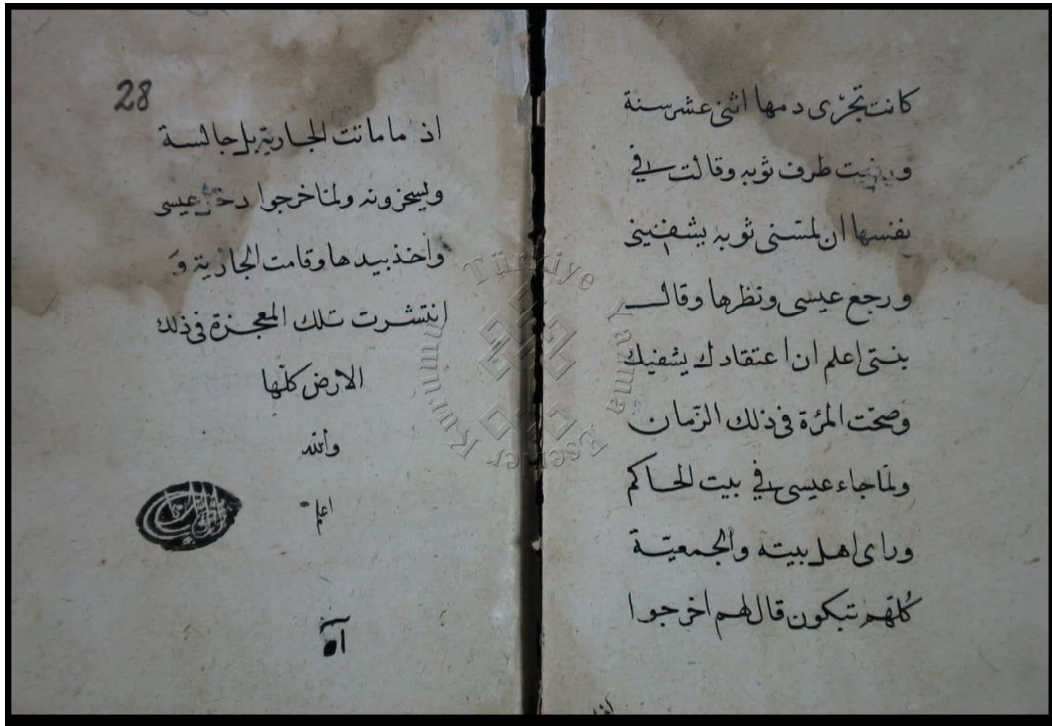 كانت تجرى دمها اثنى عشر سنة
طرف ثوبه وقالت فى
نفسها ان لمتسنى ثوبه يشفينى
ورجع عيسى ونظرها وقال
بنتى اعلم ان اعتقادك يشفيك
وصحّت المرٔة فى ذلك الزّمان
ولمّا جاء عيسى فى بيت الحاكم
وراى اهل بيته والجمعيّة
كُلّهم تبكون قال لهم اخرجوا
28
اذ ما ماتت الجارية بل جالسة
ويسخرونه ولمّا خرجوا دخل عيسى
واخذ بيدها وقامت الجارية وَ
انتشرت تلك المعجزة فى ذلك
الارض كلّها
والله
اعلم
Türkiye Yazma Eserler Kurumu